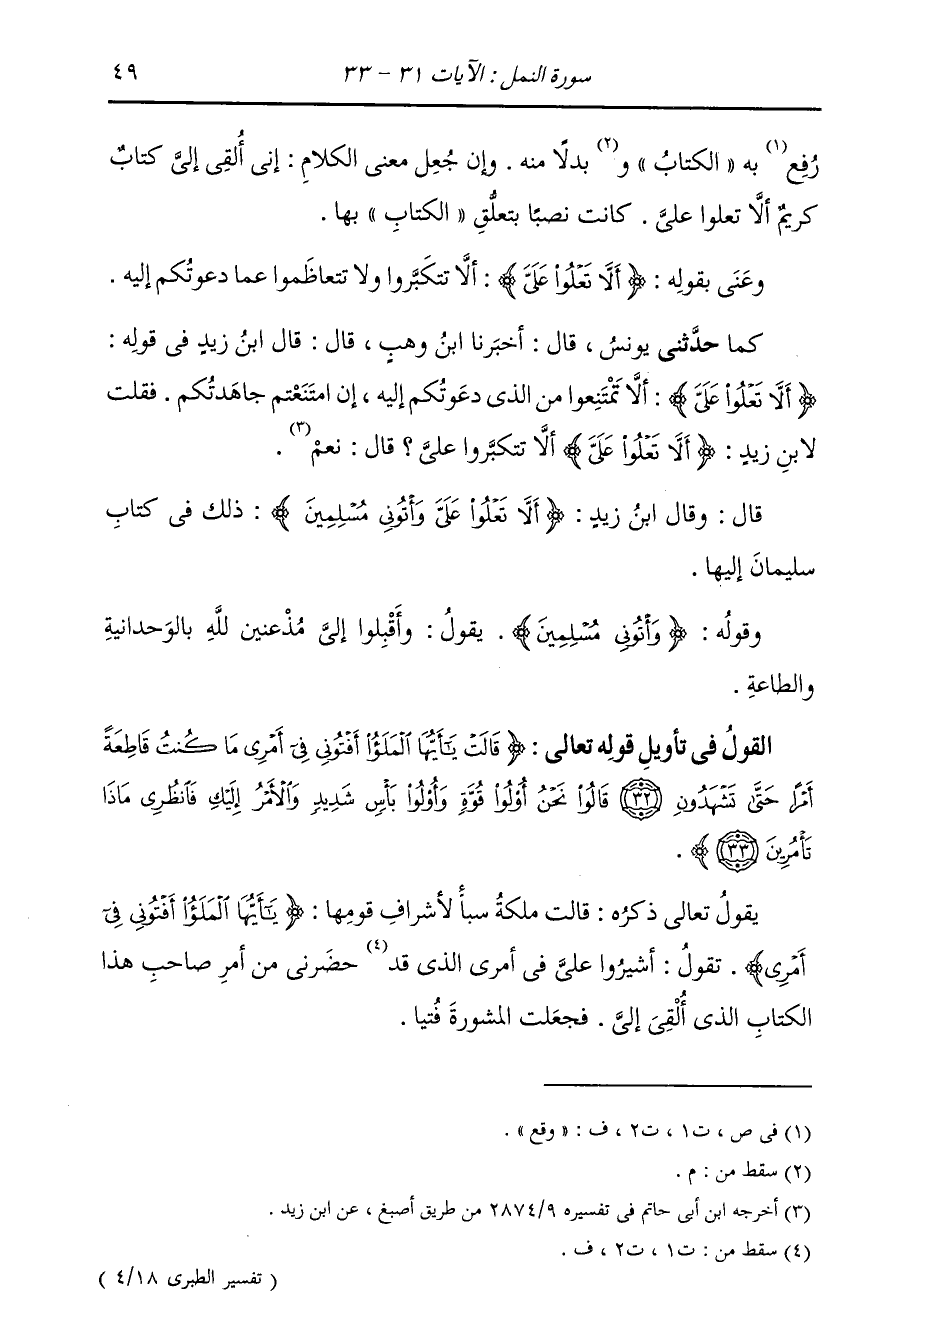 سورة النمل : الآيات ٣١ - ٣٣ ٤٩
رُفِع(١) به « الكتابُ » و(٢) بدلًا منه . وإن جُعِل معنى الكلامِ : إنى أُلقِى إلىَّ كتابٌ
كريمٌ ألَّا تعلوا علىَّ . كانت نصبًا بتعلُّقِ « الكتابِ » بها .
وعَنَى بقولِه : ﴿ أَلَّا تَعْلُوا۟ عَلَىَّ ﴾ : ألَّا تتكَبَّروا ولا تتعاظَموا عما دعوتُكم إليه .
كما حدَّثنى يونسُ ، قال : أخبَرنا ابنُ وهبٍ ، قال : قال ابنُ زيدٍ فى قولِه :
﴿ أَلَّا تَعْلُوا۟ عَلَىَّ ﴾ : ألَّا تمْتَنِعوا من الذى دعَوتُكم إليه ، إن امتَنَعْتم جاهَدتُكم . فقلت
لابنِ زيدٍ : ﴿ أَلَّا تَعْلُوا۟ عَلَىَّ ﴾ ألَّا تتكبَّروا علىَّ ؟ قال : نعمْ(٣) .
قال : وقال ابنُ زيدٍ : ﴿ أَلَّا تَعْلُوا۟ عَلَىَّ وَأْتُونِى مُسْلِمِينَ ﴾ : ذلك فى كتابِ
سليمانَ إليها .
وقولُه : ﴿ وَأْتُونِى مُسْلِمِينَ ﴾ . يقولُ : وأَقْبِلوا إلىَّ مُذْعنين للَّهِ بالوَحدانيةِ
والطاعةِ .
القولُ فى تأويلِ قولِه تعالى : ﴿ قَالَتْ يَـٰٓأَيُّهَا ٱلْمَلَؤُا۟ أَفْتُونِى فِىٓ أَمْرِى مَا كُنتُ قَاطِعَةً
أَمْرًا حَتَّىٰ تَشْهَدُونِ ٣٢ قَالُوا۟ نَحْنُ أُو۟لُوا۟ قُوَّةٍ وَأُو۟لُوا۟ بَأْسٍ شَدِيدٍ وَٱلْأَمْرُ إِلَيْكِ فَٱنظُرِى مَاذَا
تَأْمُرِينَ ٣٣ ﴾ .
يقولُ تعالى ذكرُه : قالت ملكةُ سبأً لأشرافِ قومِها : ﴿ يَـٰٓأَيُّهَا ٱلْمَلَؤُا۟ أَفْتُونِى فِىٓ
أَمْرِى ﴾ . تقولُ : أشيرُوا علىَّ فى أمرى الذى قد(٤) حضَرنى من أمرِ صاحبِ هذا
الكتابِ الذى أُلْقِىَ إلىَّ . فجعَلت المشورةَ فُتيا .
(١) فى ص ، ت١ ، ت٢ ، ف : « وقع » .
(٢) سقط من : م .
(٣) أخرجه ابن أبى حاتم فى تفسيره ٢٨٧٤/٩ من طريق أصبغ ، عن ابن زيد .
(٤) سقط من : ت١ ، ت٢ ، ف .
( تفسير الطبرى ٤/١٨ )